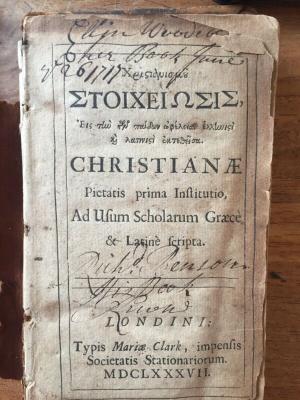 Her Book June
ye 26 1717
Χριστιανισμοῦ
ΣΤΟΙΧΕΙΩΣΙΣ,
Εἰς τὴν τῶν παίδων ὠφέλειαν ἑλληνιστὶ
καὶ λατινιστὶ ἐκτεθεῖσα.
CHRISTIANÆ
Pietatis prima Institutio,
Ad Usum Scholarum Græcè
& Latinè scripta.
Richd. Benson
His Book
LONDINI:
Typis Mariæ Clark, impensis
Societatis Stationariorum.
MDCLXXXVII.